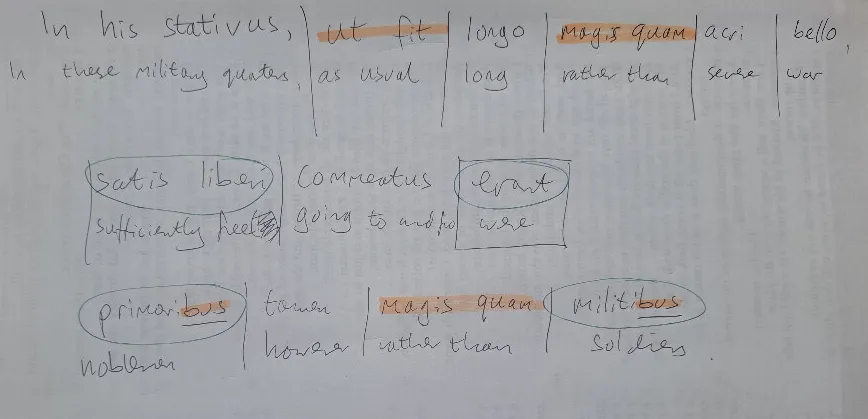 In his stativus, ut fit longo magis quam acri bello,
In these military quarters, as usual long rather than severe war
satis liberi commeatus erant
sufficiently free going to and fro were
primoribus tamen magis quam militibus
noblemen however rather than soldiers.